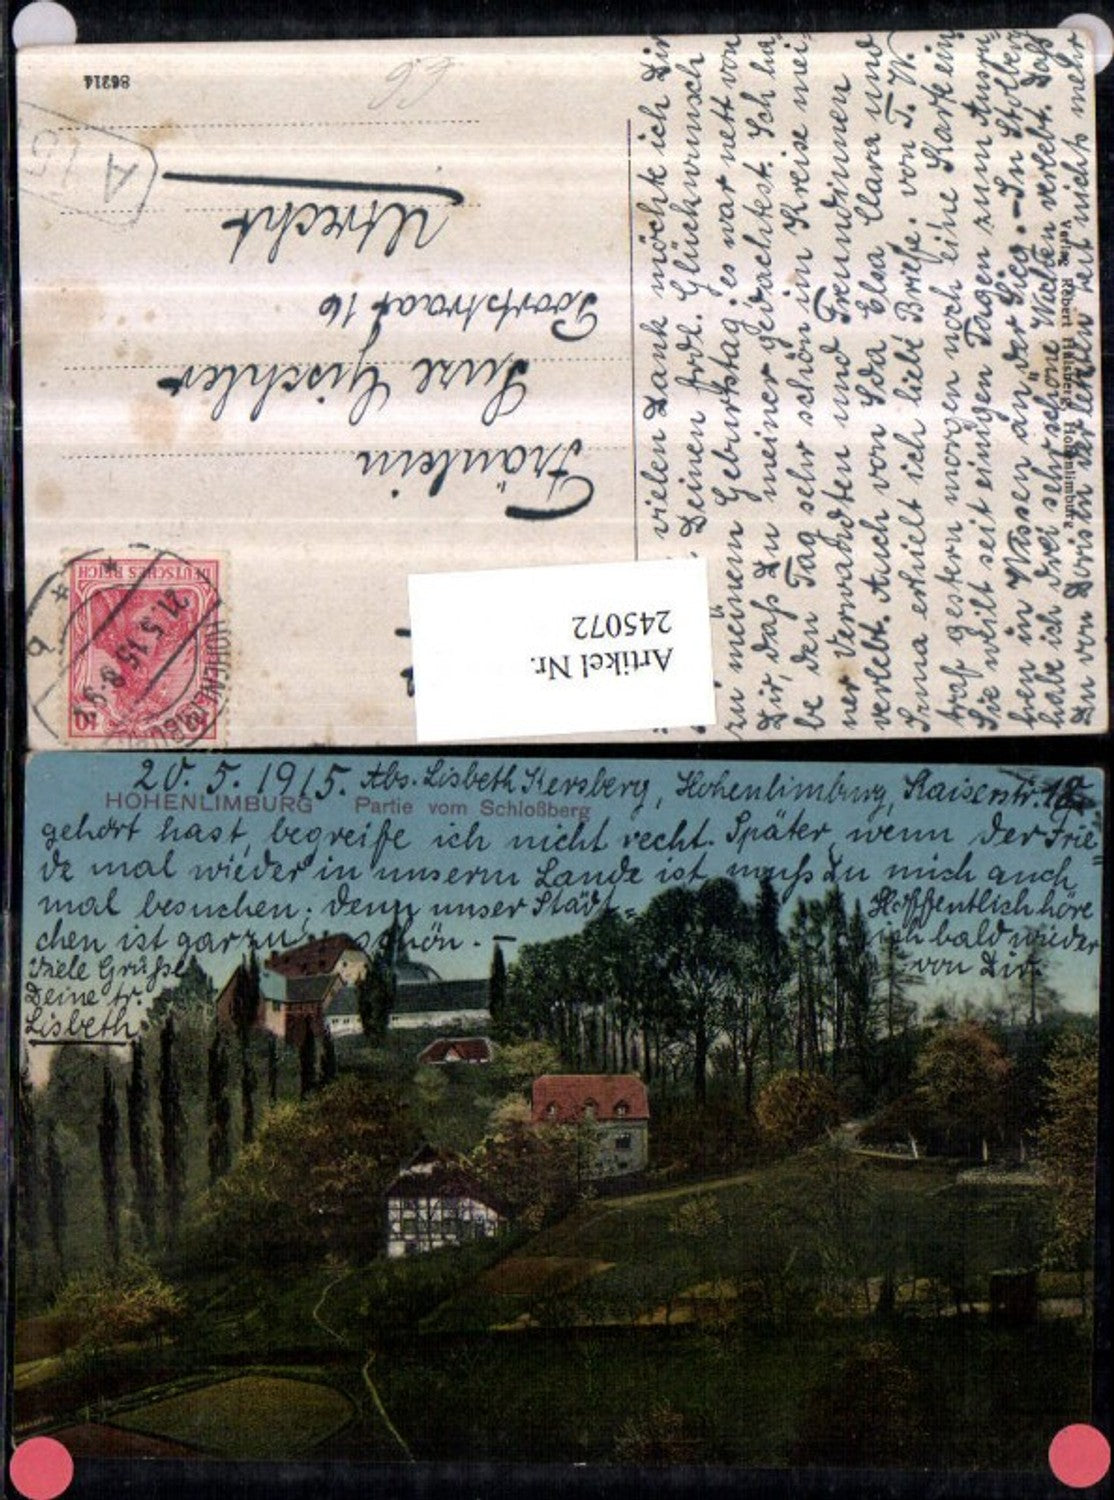 86214
Fräulein
Lure Gischler
Poortstraat 16
Utrecht
DEUTSCHES REICH
10
HOHENLIMBURG
21.5.15.8-9
Artikel Nr.
245072
Verlag Robert Hülsberg, Hohenlimburg
vielen Dank möchte ich Dir
Deinen frdl. Glückwunsch
zu meinem Geburtstag; es war nett von
Dir, daß Du meiner gedachtest. Ich ha-
be den Tag sehr schön im Kreise mei-
ner Verwandten und Freundinnen
verlebt. Auch von Ida, Elsa, Clara und
Irma erhielt ich liebe Briefe. von T. W.
traf gestern morgen noch eine Karte ein
Sie weilt seit einigen Tagen zum Ausru-
hen in Wissen an der Sieg. - In Stolberg
habe ich drei sehr schöne Wochen verlebt. Daß
Du von Doris in der letzten Zeit nichts mehr
20. 5. 1915. Abs. Lisbeth Kersberg, Hohenlimburg, Kaiserstr. 18
HOHENLIMBURG Partie vom Schloßberg
gehört hast, begreife ich nicht recht. Später, wenn der Frie-
de mal wieder in unserm Lande ist, mußt Du mich auch
mal besuchen; denn unser Städt-
chen ist gar zu schön. -
Hoffentlich höre
ich bald wieder
von Dir.
Viele Grüße
Deine tr.
Lisbeth.